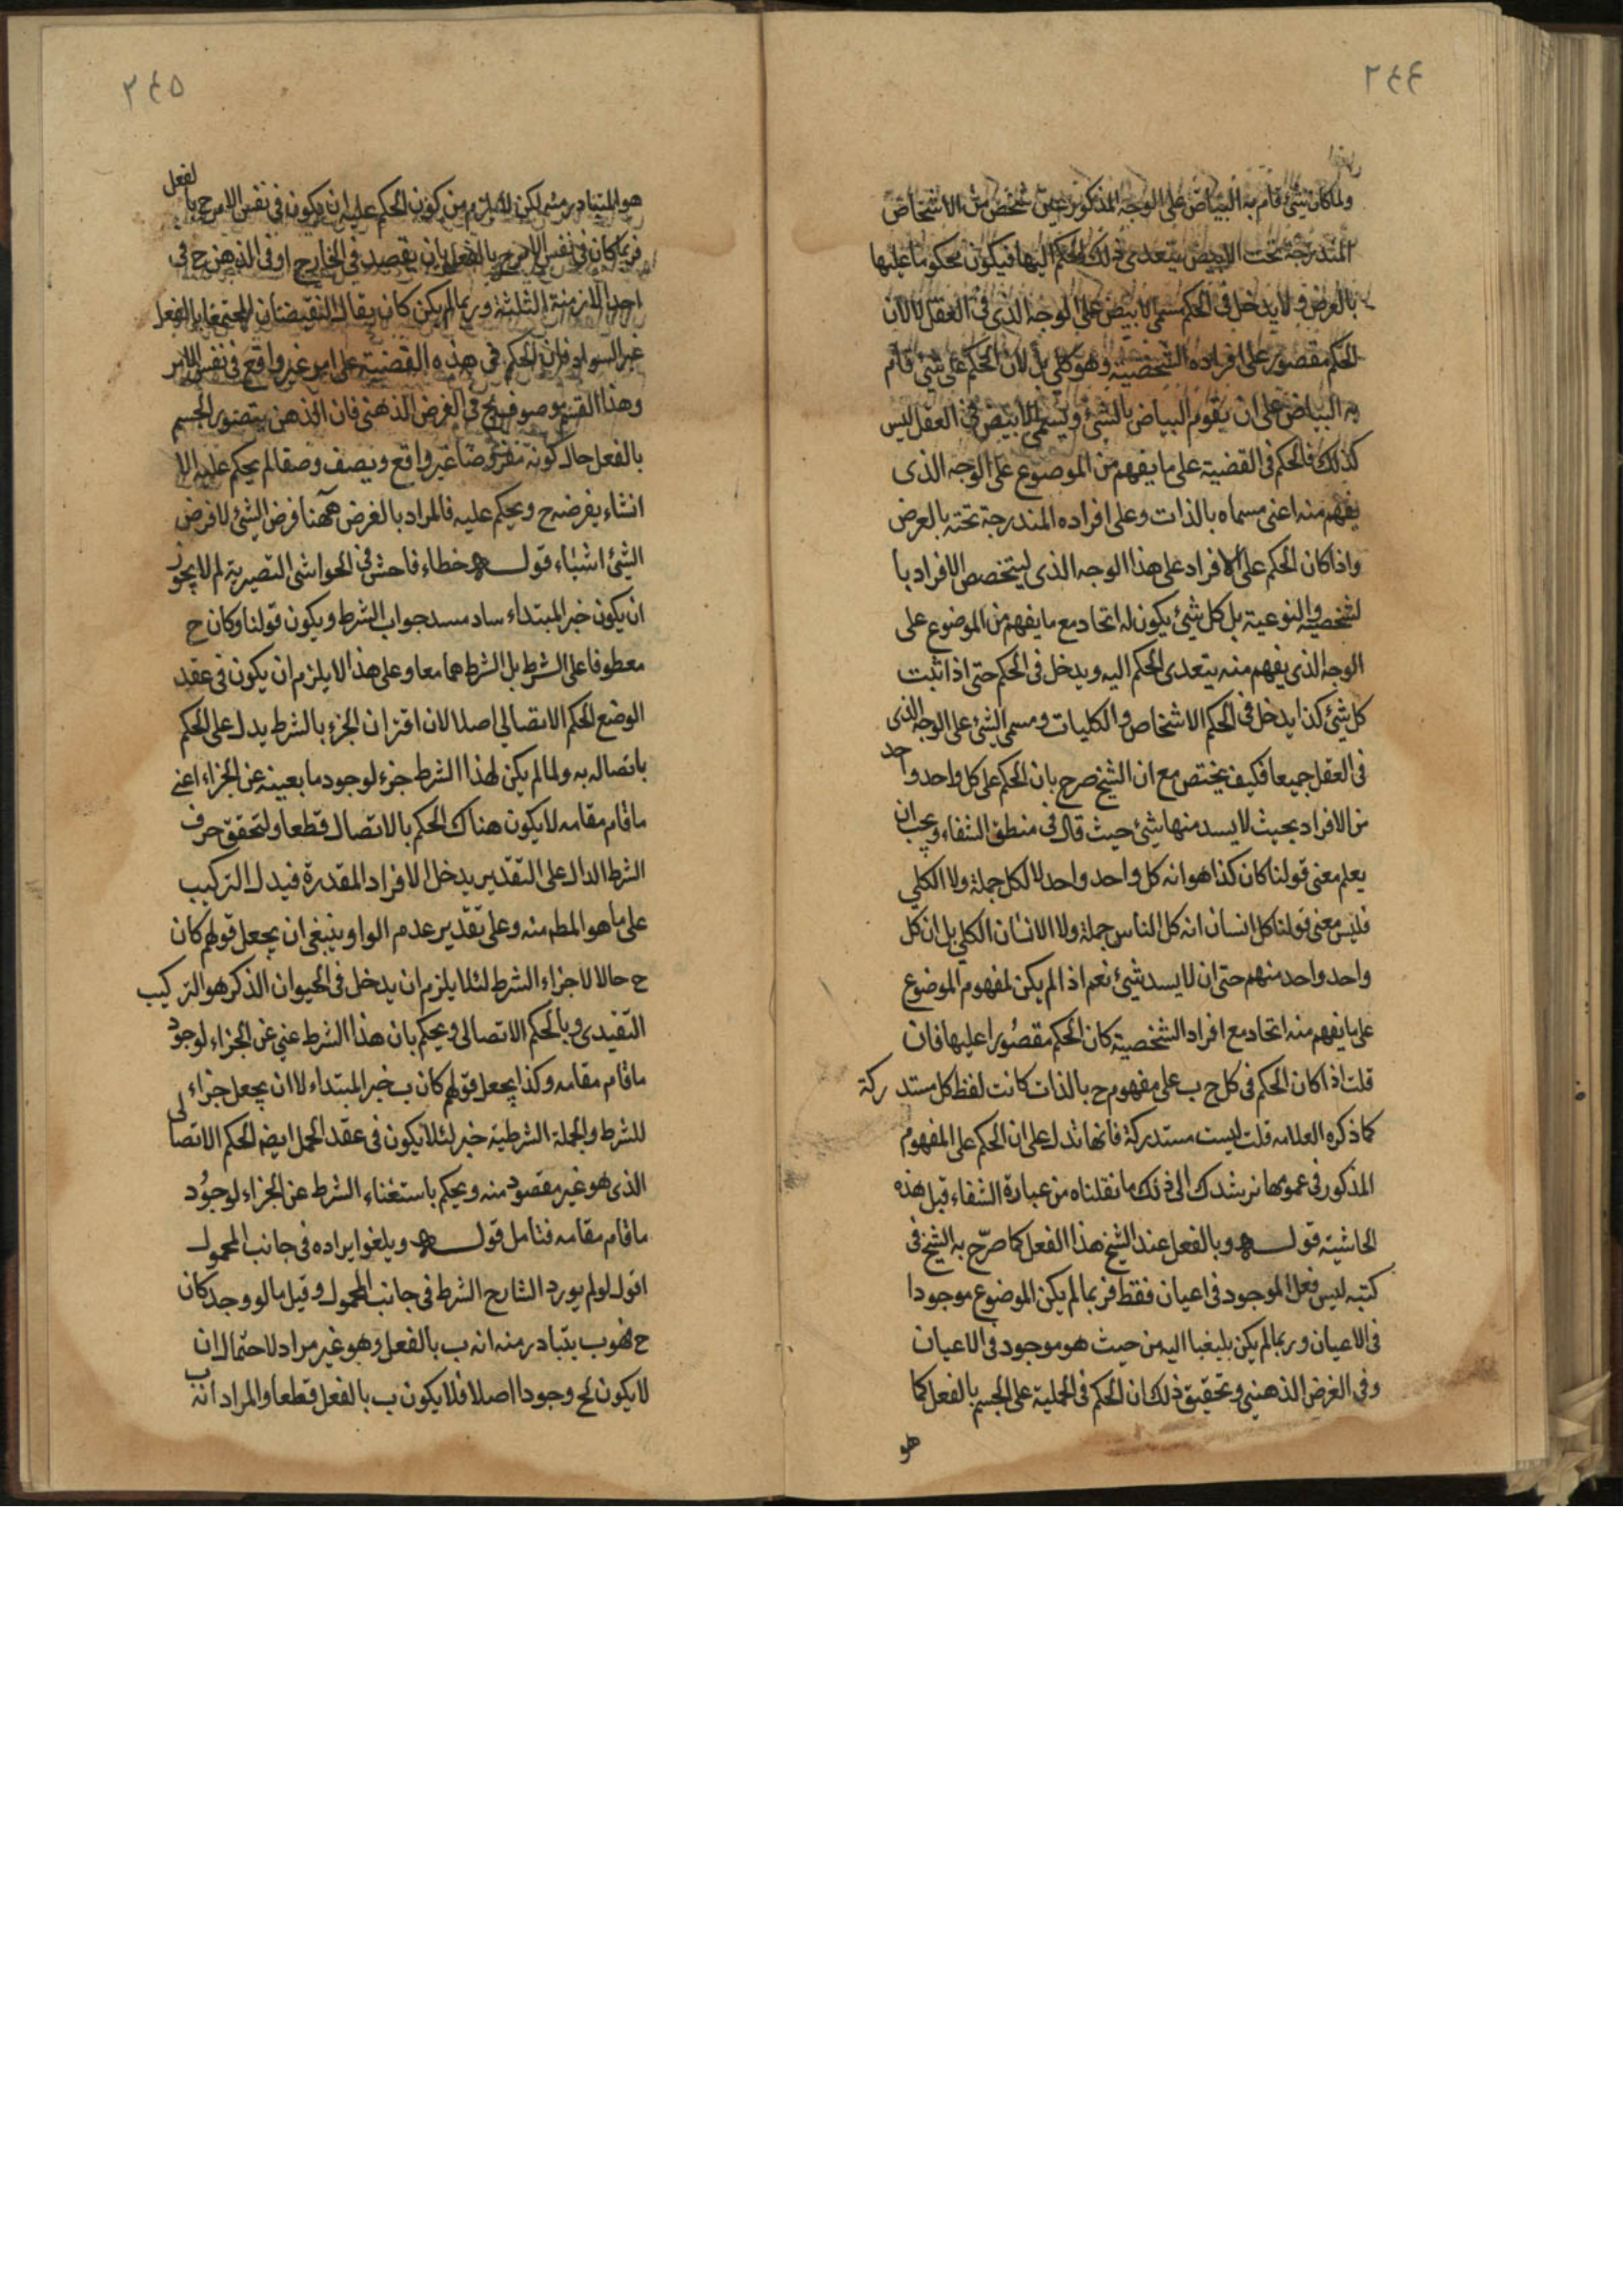 ٢٤٤
ولما كان شئ قام به البياض على الوجه المذكور عين شخص من الاشخاص
المندرجة تحت الابيض يتعدى ذلك الحكم اليها فيكون محكوما عليها
بالعرض ولا يدخل فى الحكم مسمى الابيض على الوجه الذى فى العقل لا لان
الحكم مقصور على افراده الشخصية وهو كلى بل لان الحكم على شئ قام
به البياض على ان يقوم البياض بالشئ ويسمى الابيض فى العقل ليس
كذلك فالحكم فى القضية على ما يفهم من الموضوع على الوجه الذى
يفهم منه اعنى مسماه بالذات وعلى افراده المندرجة تحته بالعرض
واذا كان الحكم على الافراد على هذا الوجه الذى ليتخصص الافراد با
لشخصية والنوعية بل كل شئ يكون له اتحاد مع ما يفهم من الموضوع على
الوجه الذى يفهم منه يتعدى الحكم اليه ويدخل فى الحكم حتى اذا ثبت
كل شئ كذا يدخل فى الحكم الاشخاص والكليات ومسمى الشئ على الوجه الذى
فى العقل جميعا فكيف يختص مع ان الشيخ صرح بان الحكم على كل واحد واحد
من الافراد بحيث لا يسد منها شئ حيث قال فى منطق الشفاء ويجب ان
يعلم معنى قولنا كان كذا هو انه كل واحد واحد لا لكل جملة ولا الكلي
فليس معنى قولنا كل انسان انه كل الناس جملة ولا الانسان الكلي بل ان كل
واحد واحد منهم حتى ان لا يسد شئ نعم اذا لم يكن لمفهوم الموضوع
على ما يفهم منه اتحاد مع افراد الشخصية كان الحكم مقصورا عليها فان
قلت اذا كان الحكم فى كل ج ب على مفهوم ج بالذات كانت لفظ كل مستدركة
كما ذكره العلامه قلت ليست مستدركة فانها تدل على ان الحكم على المفهوم
المذكور فى عمومها نرشدك الى ذلك ما نقلناه من عبارة الشفاء قبل هذه
الحاشية قوله وبالفعل عند الشيخ هذا الفعل كما صرّح به الشيخ فى
كتبه ليس فعل الموجود فى اعيان فقط فربما لم يكن الموضوع موجودا
فى الاعيان وربما لم يكن يليغبا اليه من حيث هو موجود فى الاعيان
وفى الفرض الذهنى وتحقيق ذلك ان الحكم فى الحملية على الجسم بالفعل كما
هو
٢٤٥
هو المتبادر منه لكن لا يلزم من كون الحكم عليه ان يكون فى نفس الامر ج بالفعل
فربما كان فى نفس الامر ج بالفعل بان يقصد فى الخارج او فى الذهن ج فى
احد الازمنة الثلثة وربما لم يكن كان يقال النقيضان المجتمعا بالفعل
غير السواد فان الحكم فى هذه القضية على امر غير واقع فى نفس الامر
وهذا القسم موصوف بج فى الفرض الذهنى فان الذهن يتصور الجسم
بالفعل حال كونه مفروضا غير واقع ويصف وصفا لم يحكم عليه الا
انشاء يفرضه ج ويحكم عليه فالمراد بالفرض ههنا فرض الشئ لا فرض
الشئ اشياء قوله خطاء فاحش فى الحواشى النصيرية لم لا يجوز
ان يكون خبر المبتداء ساد مسد جواب الشرط ويكون قولنا وكان ج
معطوفا على الشرط بل الشرط هما معا وعلى هذا لا يلزم ان يكون فى عقد
الوضع الحكم الاتصالي اصلا لان اقتران الجزء بالشرط يدل على الحكم
باتصاله به ولما لم يكن لهذا الشرط جزء لوجود ما بعينه عن الجزاء اعنى
ما قام مقامه لا يكون هناك الحكم بالاتصال قطعا ولتحقق حرف
الشرط الدال على التقدير يدخل الافراد المقدرة فيدل التركيب
على ما هو المطم منه وعلى تقدير عدم الواو ينبغى ان يجعل قولهم كان
ج حالا لا جزاء الشرط لئلا يلزم ان يدخل فى الحيوان الذكر هو التركيب
التقيدى وبالحكم الاتصالى ويحكم بان هذا الشرط غنى عن الجزاء لوجود
ما قام مقامه وكذا يجعل قولهم كان ب خبر المبتداء لا ان يجعل جزاء
للشرط والجملة الشرطية خبر لئلا يكون فى عقد الحمل ايضه الحكم الاتصالى
الذى هو غير مقصود منه ويحكم باستغناء الشرط عن الجزاء لوجود
ما قام مقامه فتامل قوله ويلغو ايراده فى جانب المحمول
اقول لو لم يورد الشارح الشرط فى جانب المحمول وقيل مالو وجد كان
ج فهو ب يتبادر منه انه ب بالفعل وهو غير مراد لاحتمال ان
لا يكون لج وجودا اصلا فلا يكون ب بالفعل قطعا والمراد انه ب